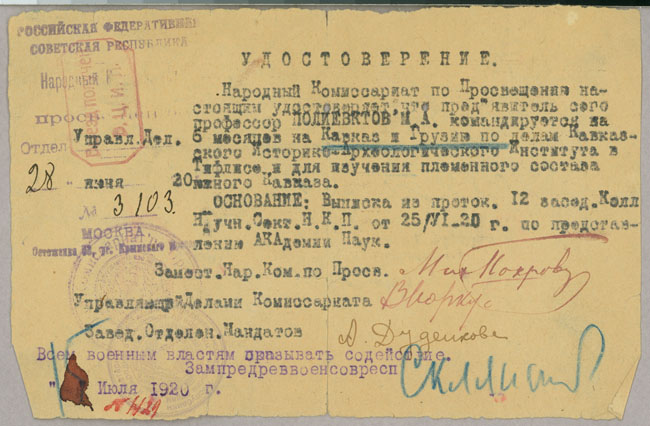 РОССИЙСКАЯ ФЕДЕРАТИВНАЯ
СОВЕТСКАЯ РЕСПУБЛИКА
Народный
Отдел Управл.Дел.
28 " июня 20
№ 3103.
МОСКВА.
УДОСТОВЕРЕНИЕ.
Народный Комиссариат по Просвещению на-
стоящим удостоверяет что пред'явитель сего
профессор ПОЛИЕВКТОВ М.А. командируется на
6 месяцев на Кавказ и Грузию по делам Кавказ-
ского Историко-Археологического Института в
Тифлисе и для изучения племенного состава
южного Кавказа.
ОСНОВАНИЕ: Выписка из проток. 12 засед.Колл
Научн.Сект.Н.К.П. от 25/VI-20 г. по представ-
лению АКАдемии Наук.
Замест.Нар.Ком.по Просв. Покров
Управляющий Делами Комиссариата
Завед.Отделен.Мандатов Д. Дуденкова
Всем военным властям оказывать содействие.
Зампредреввоенсовресп
" Июля 1920 г. Склянский